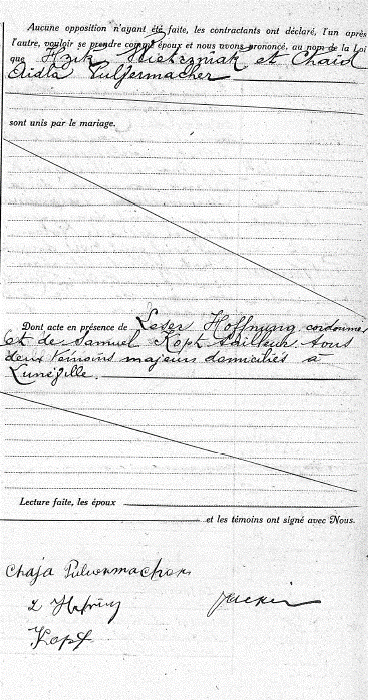 Aucune opposition n'ayant été faite, les contractants ont déclaré, l'un après
l'autre, vouloir se prendre comme époux et nous avons prononcé, au nom de la Loi
que et Chaïd
Aidla Pulfermacher
sont unis par le mariage.
Dont acte en présence de Leser Hoffnung, cordonnier
et de Samuel Kopt tailleur, tous
deux témoins majeurs domiciliés à
Lunéville.
Lecture faite, les époux
et les témoins ont signé avec Nous.
Chaja
Kopf